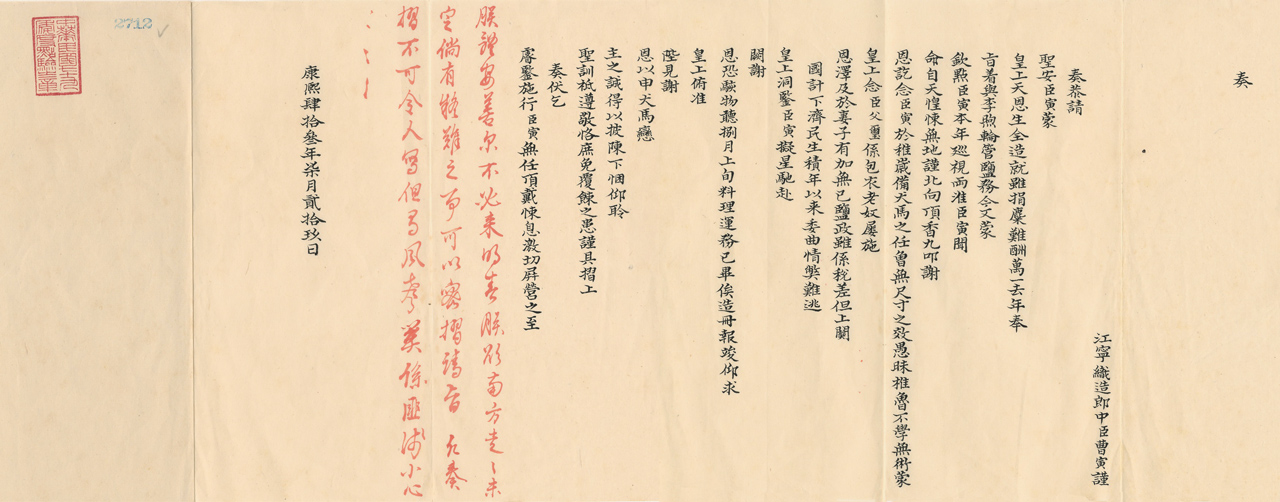 奏
江寧織造郎中臣曹寅謹
奏恭請
聖安臣寅蒙
皇上天恩生全造就雖捐糜難酬萬一去年奉
旨着與李煦輪管鹽務今又蒙
欽點臣寅本年巡視兩淮臣寅聞
命自天惶悚無地謹北向頂香九叩謝
恩訖念臣寅於稚歲備犬馬之任曾無尺寸之效愚昧椎魯不學無術蒙
皇上念臣父璽係包衣老奴屢施
恩澤及於妻子有加無已鹽政雖係稅差但上關
國計下濟民生積年以來委曲情弊難逃
皇上洞鑒臣寅擬星馳赴
闕謝
恩恐駭物聽捌月上旬料理運務已畢俟造冊報竣仰求
皇上俯准
陛見謝
恩以申犬馬戀
主之誠得以披陳下悃仰聆
聖訓祗遵敬恪庶免覆餗之患謹具摺上
奏伏乞
睿鑒施行臣寅無任頂戴悚息激切屏營之至
朕體安善爾不必來明春朕欲南方走〻未
定倘有疑難之事可以密摺請旨凡奏
摺不可令人寫但有風聲關係匪淺小心
〻〻〻
康熙肆拾叁年柒月貳拾玖日
2712